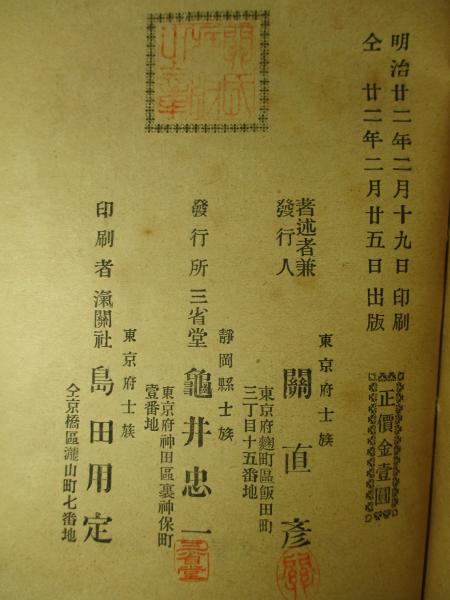 明治廿二年二月十九日印刷
仝 廿二年二月廿五日出版
正價金壹圓
著述者兼
發行人
東京府士族
關直彥
東京府麴町區飯田町
三丁目十五番地
發行所 三省堂
靜岡縣士族
龜井忠一
東京府神田區裏神保町
壹番地
三省堂
印刷者 滊關社
東京府士族
島田用定
仝京橋區瀧山町七番地